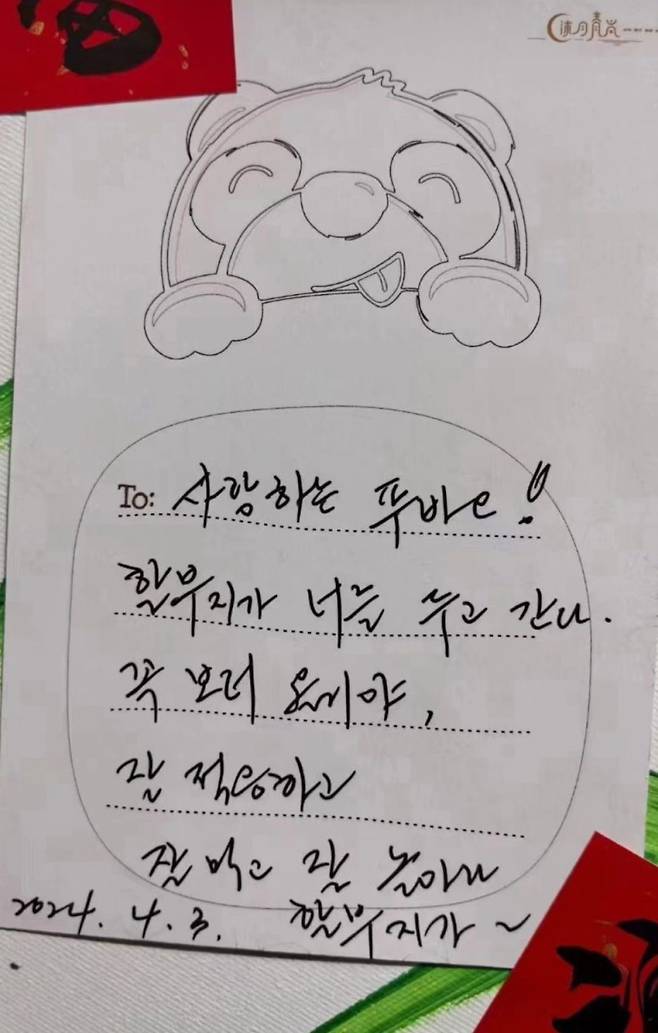 To: 사랑하는 푸바오!
할부지가 너를 두고 간다.
꼭 보러 올거야,
잘 적응하고
잘 먹고 잘 놀아라
2024. 4. 3. 할부지가~